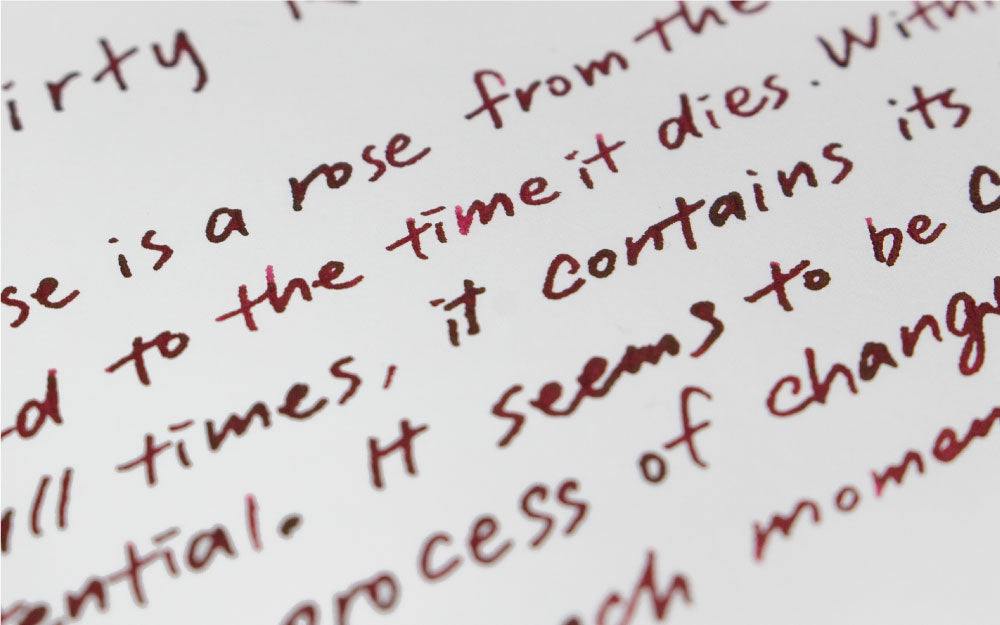 irty
se is a rose from the
d to the time it dies. Within
ll times, it contains its
ential. It seems to be c
rocess of chang
ch momen